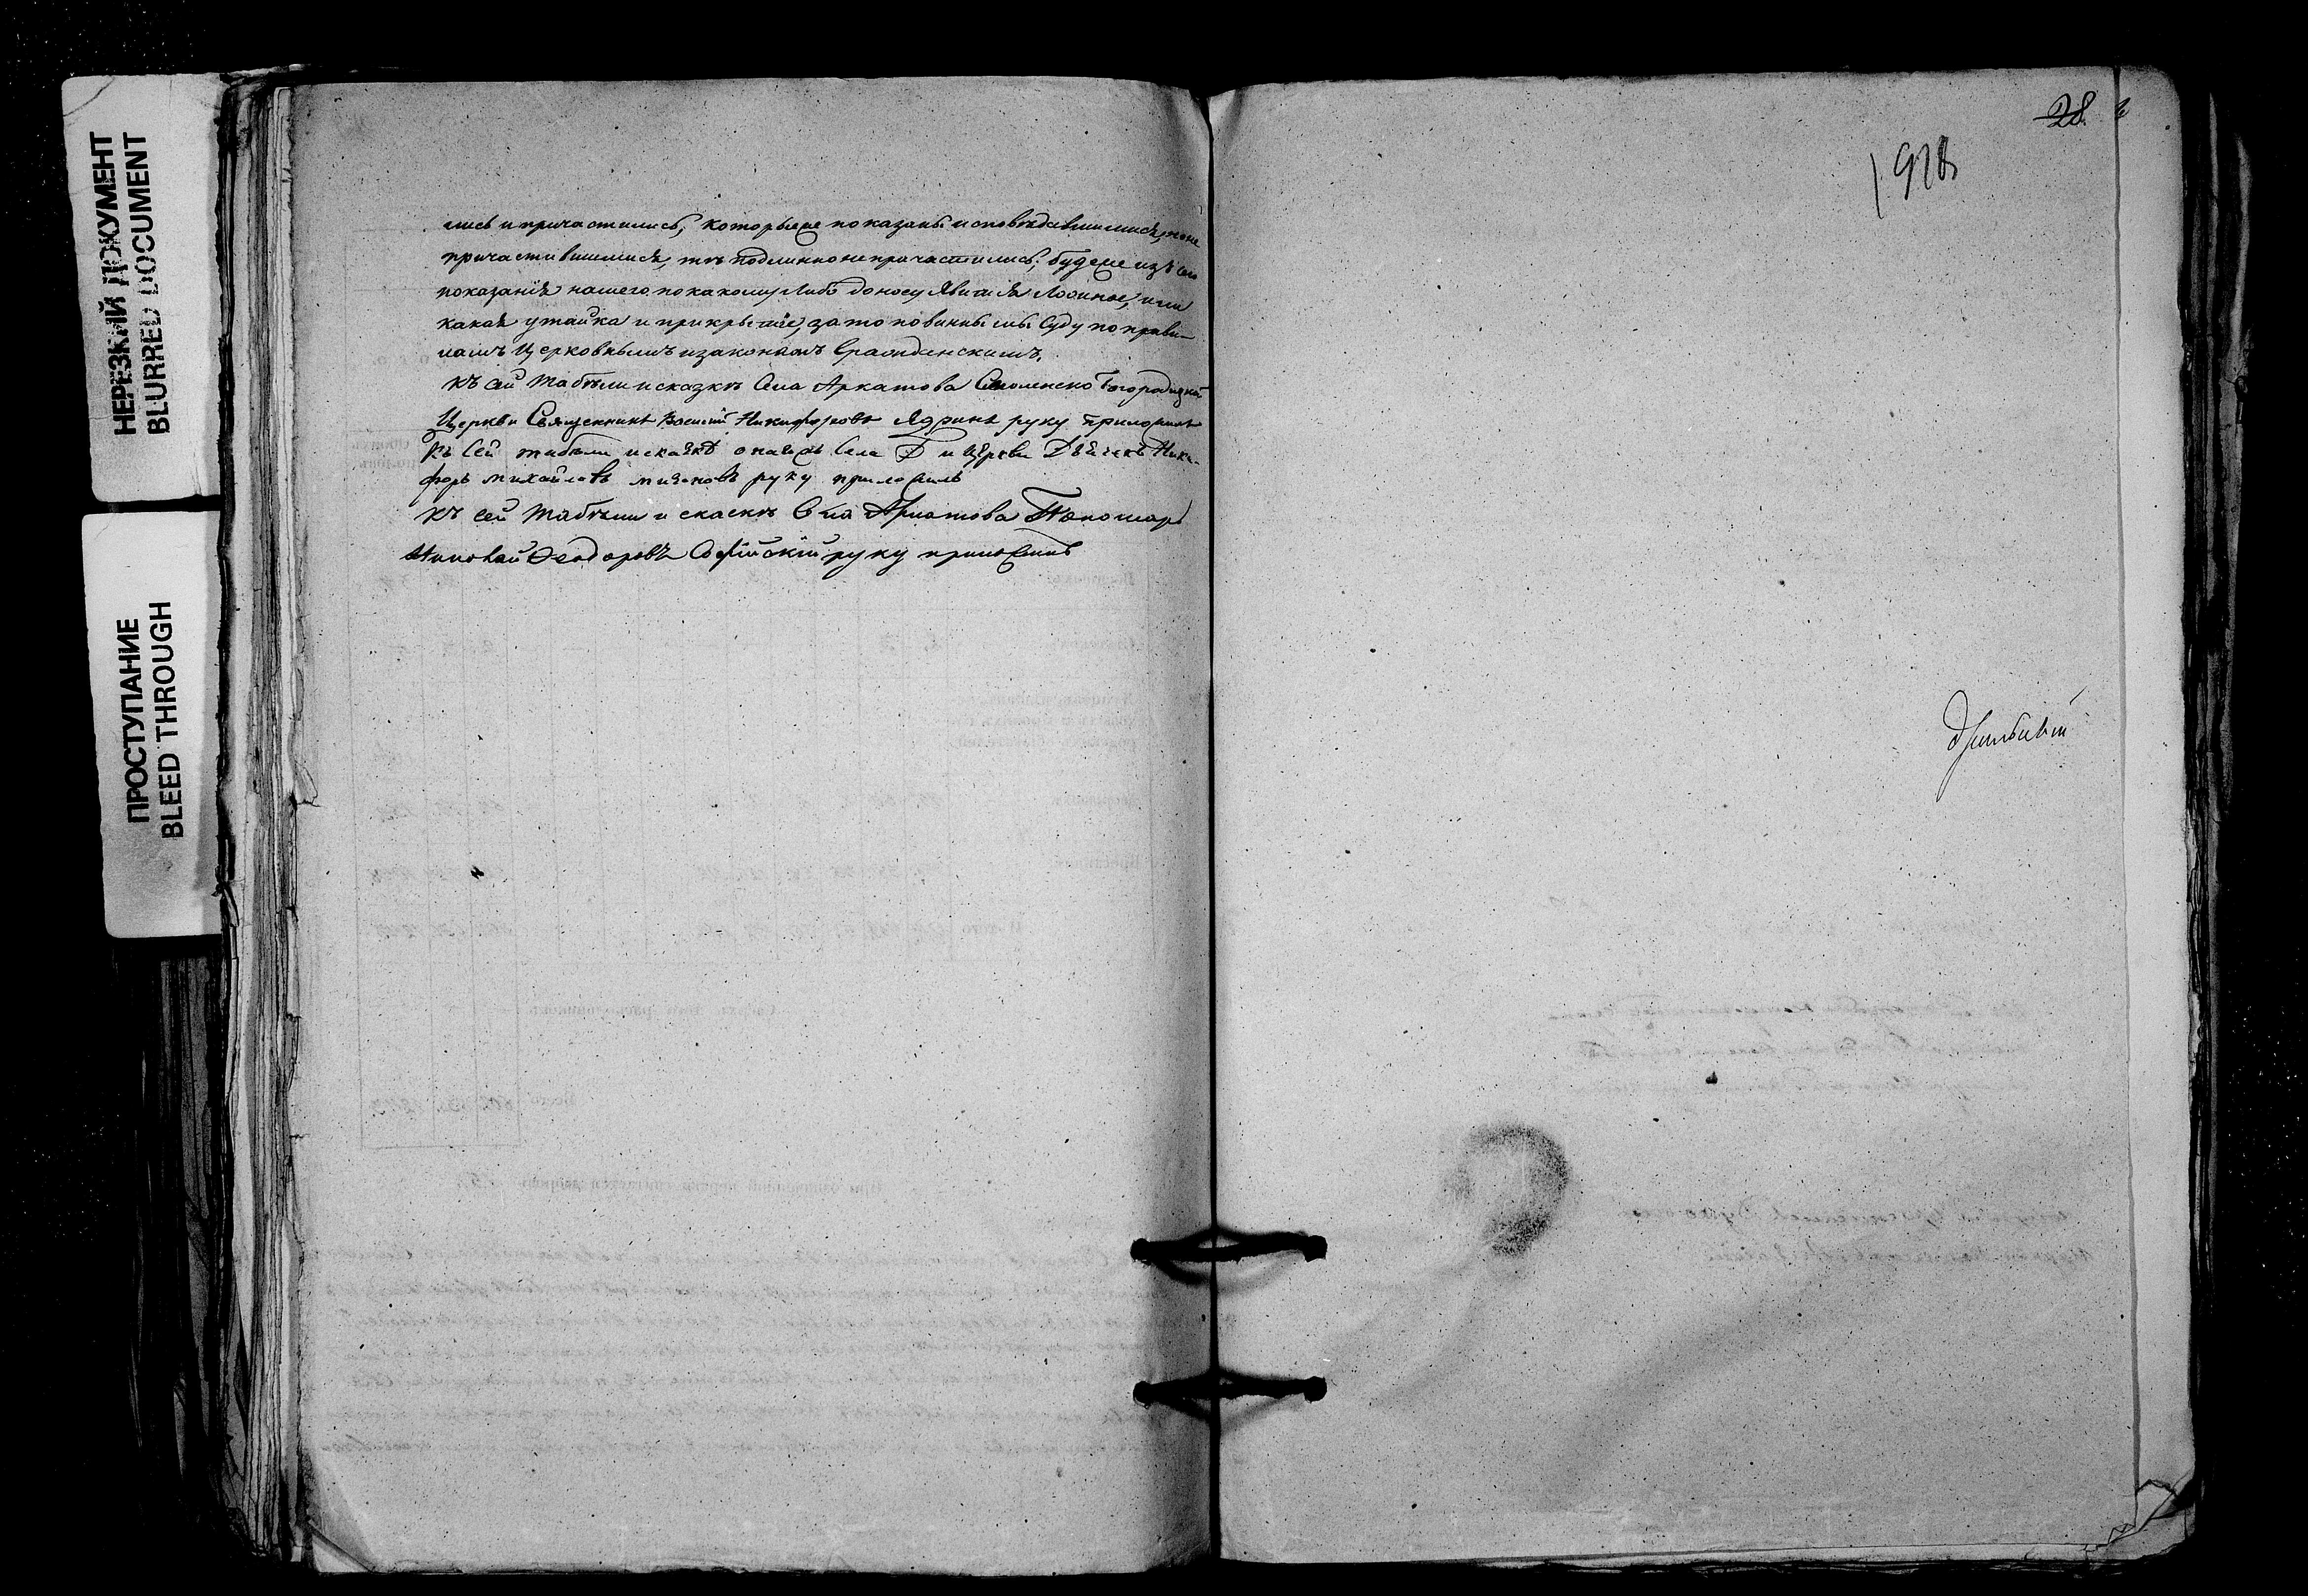 НЕРЕЗКИЙ ДОКУМЕНТ
BLURRED DOCUMENT
ПРОСТУПАНИЕ
BLEED THROUGH
лись и причастились, которыеже показаны исповѣдавшимися, ноне
причастившимися, тѣ подлинно непричастились; будеже изъ сего
показанія нашего покакому либо доносу явится ложное, или
какая утайка и прикрытие, зато повинны мы Суду по прави-
ламъ Церковнымъ изаконамъ Гражданскимъ.
Къ сей табѣли исказкѣ Села Аркатова Смоленско Богородицкой
Церкви Священникъ Василій Никифоровъ руку приложилъ
Къ сей табѣли искаскѣ Села и Церкви Дьячекъ Ники-
форъ Михайловъ руку приложилъ
Къ сей табѣли и скаскѣ Села Аркатова Пономарь
Николай Феодоровъ Софійскій руку приложилъ
28